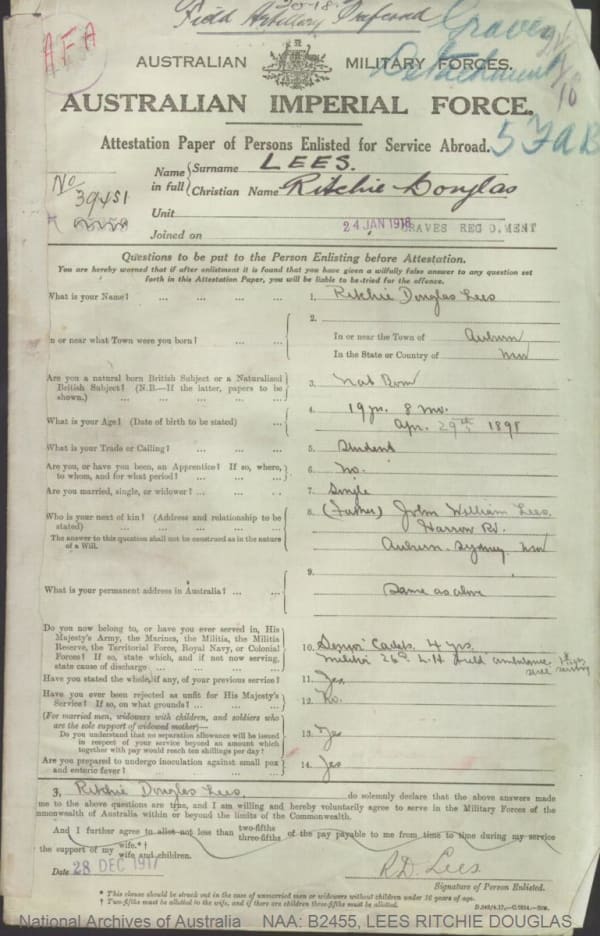 20-18.
Field Artillery Preferred
AFA
Graves
Detachment
5 FAB
AUSTRALIAN MILITARY FORCES.
AUSTRALIAN IMPERIAL FORCE.
Attestation Paper of Persons Enlisted for Service Abroad.
No 39451
Name in full { Surname LEES.
Christian Name Ritchie Douglas
Unit
Joined on 24 JAN 1918 GRAVES REG D.MENT
Questions to be put to the Person Enlisting before Attestation.
You are hereby warned that if after enlistment it is found that you have given a wilfully false answer to any question set
forth in this Attestation Paper, you will be liable to be tried for the offence.
What is your Name? ... ... ... ... 1. Ritchie Douglas Lees
2.
n or near what Town were you born? ... ... In or near the Town of Auburn
In the State or Country of NSW
Are you a natural born British Subject or a Naturalised
British Subject? (N.B.—If the latter, papers to be
shown.) ... ... ... ... 3. Nat Born
What is your Age? (Date of birth to be stated) ... 4. 19 yrs. 8 mo.
Apr. 29th 1898
What is your Trade or Calling? ... ... ... 5. Student
Are you, or have you been, an Apprentice? If so, where,
to whom, and for what period? ... ... ... 6. No.
Are you married, single, or widower? ... ... ... 7. Single
Who is your next of kin? (Address and relationship to be
stated) ... ... ... ... 8. (Father) John William Lees
The answer to this question shall not be construed as in the nature
of a Will. Harrow Rd.
Auburn. Sydney. NSW
9.
What is your permanent address in Australia? ... ... Same as above
Do you now belong to, or have you ever served in, His
Majesty's Army, the Marines, the Militia, the Militia
Reserve, the Territorial Force, Royal Navy, or Colonial
Forces? If so, state which, and if not now serving,
state cause of discharge ... ... ... 10. Senior Cadets. 4 yrs.
Militia 26th L.H. Field Ambulance still serving
Have you stated the whole, if any, of your previous service? 11. Yes
Have you ever been rejected as unfit for His Majesty's
Service? If so, on what grounds? ... ... ... 12. No.
(For married men, widowers with children, and soldiers who
are the sole support of widowed mother)—
Do you understand that no separation allowance will be issued
in respect of your service beyond an amount which
together with pay would reach ten shillings per day? 13. Yes
Are you prepared to undergo inoculation against small pox
and enteric fever? ... ... ... 14. Yes
3, Ritchie Douglas Lees do solemnly declare that the above answers made
me to the above questions are true, and I am willing and hereby voluntarily agree to serve in the Military Forces of the
mmonwealth of Australia within or beyond the limits of the Commonwealth.
And I further agree to allot not less than two-fifths
three-fifths of the pay payable to me from time to time during my service
the support of my wife.*†
wife and children.
Date 28 DEC 1917 R.D. Lees
Signature of Person Enlisted.
* This clause should be struck out in the case of unmarried men or widowers without children under 16 years of age.
† Two-fifths must be allotted to the wife, and if there are children three-fifths must be allotted.
D.249/4.17.—C.7614.—50M.
National Archives of Australia NAA: B2455, LEES RITCHIE DOUGLAS